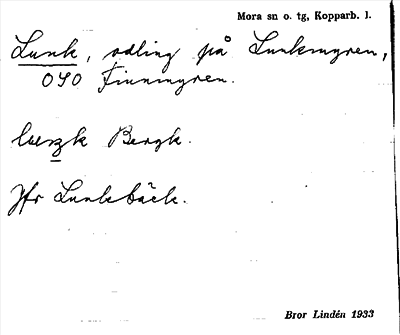 Mora sn o. tg, Kopparb. l.
Lunk, odling på Lunkmyren,
OSO Finnmyren.
Bergk.
Jfr Lunkbäck.
Bror Lindén 1933